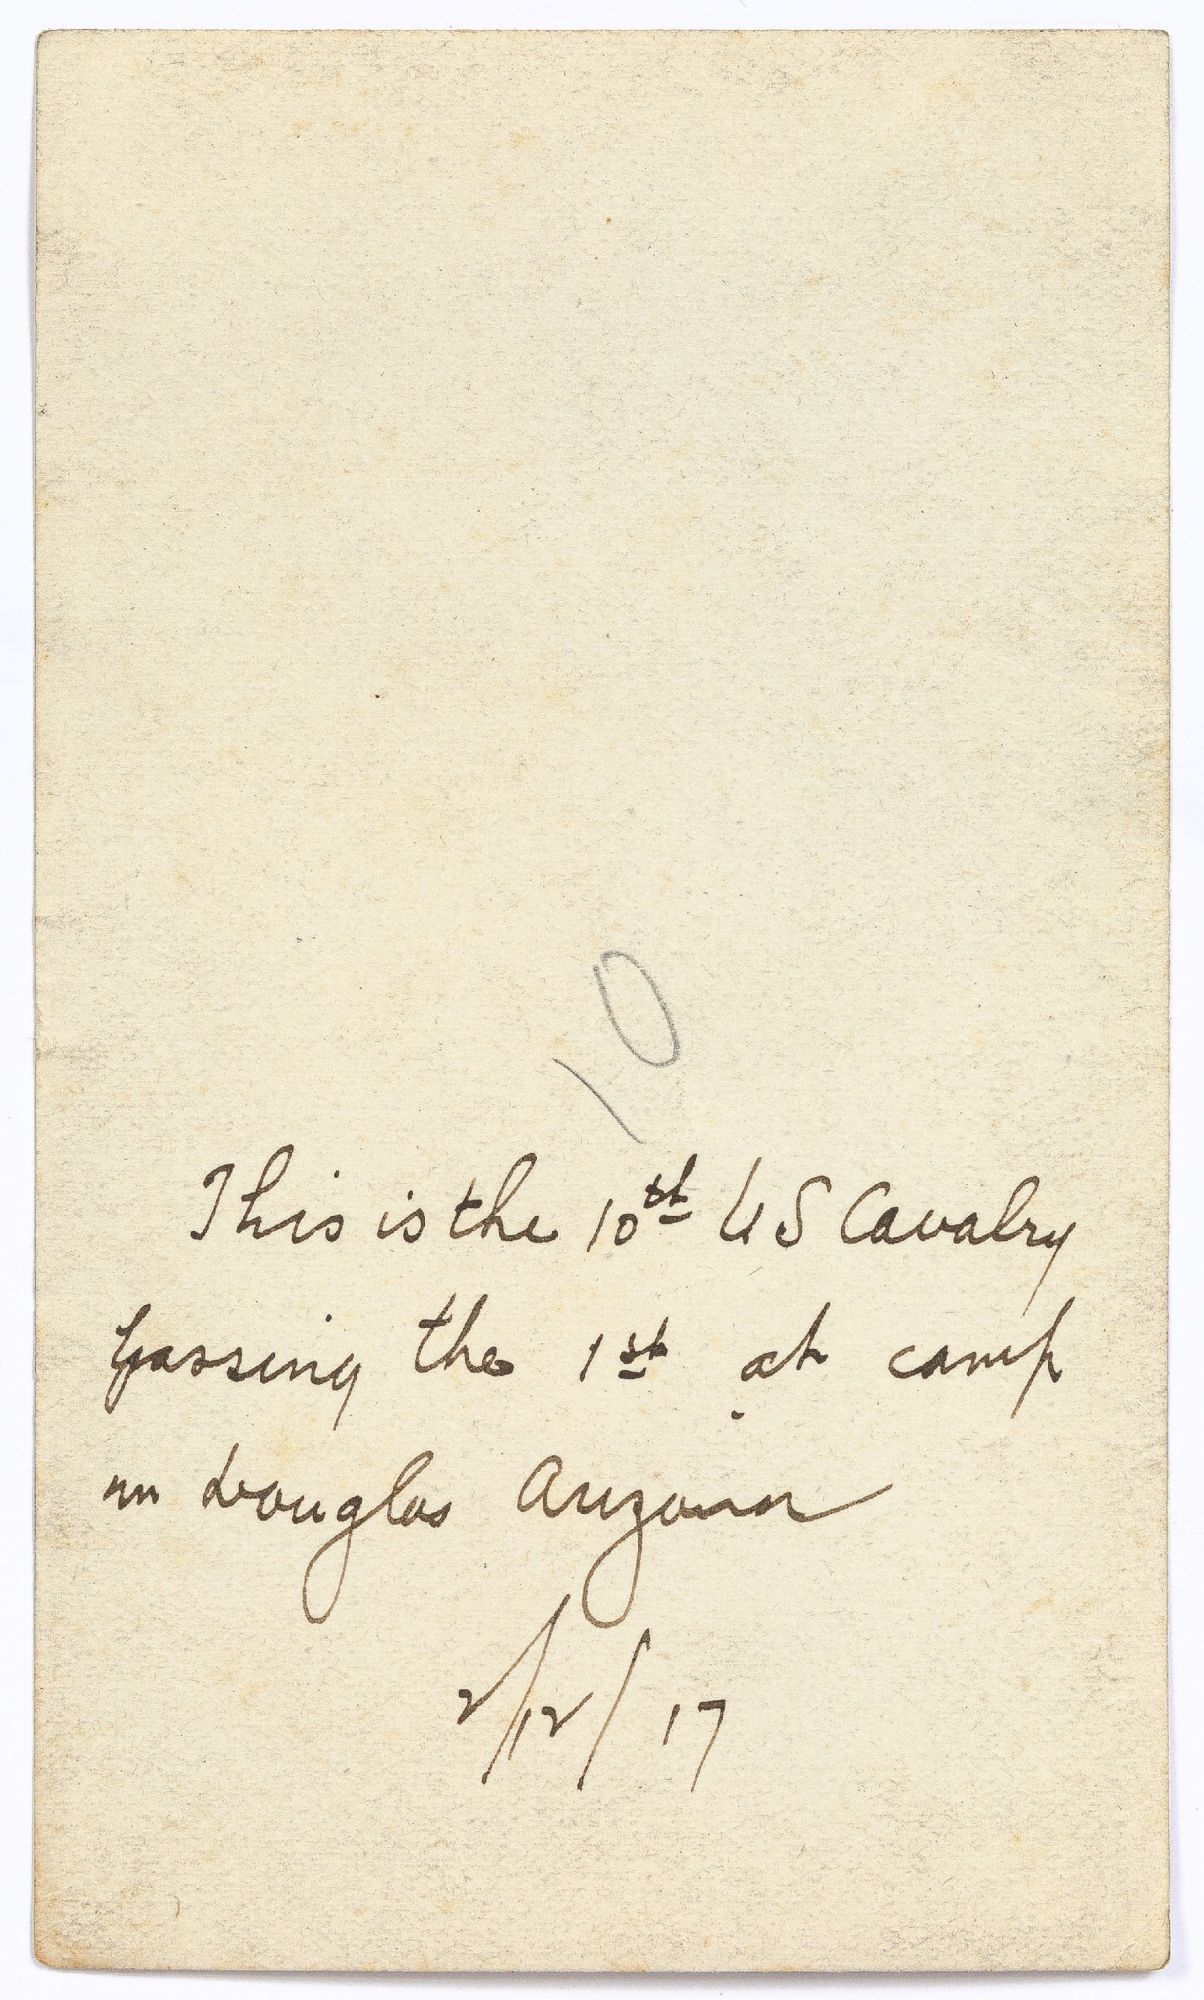 10
This is the 10th US Cavalry
passing the 1st at camp
in Douglas Arizona
2/12/17